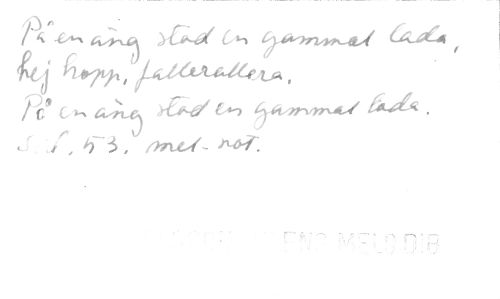 På en äng stod en gammal lada,
hej hopp, fallerallera,
På en äng stod en gammal lada.
53. mel-not.
MELODIB